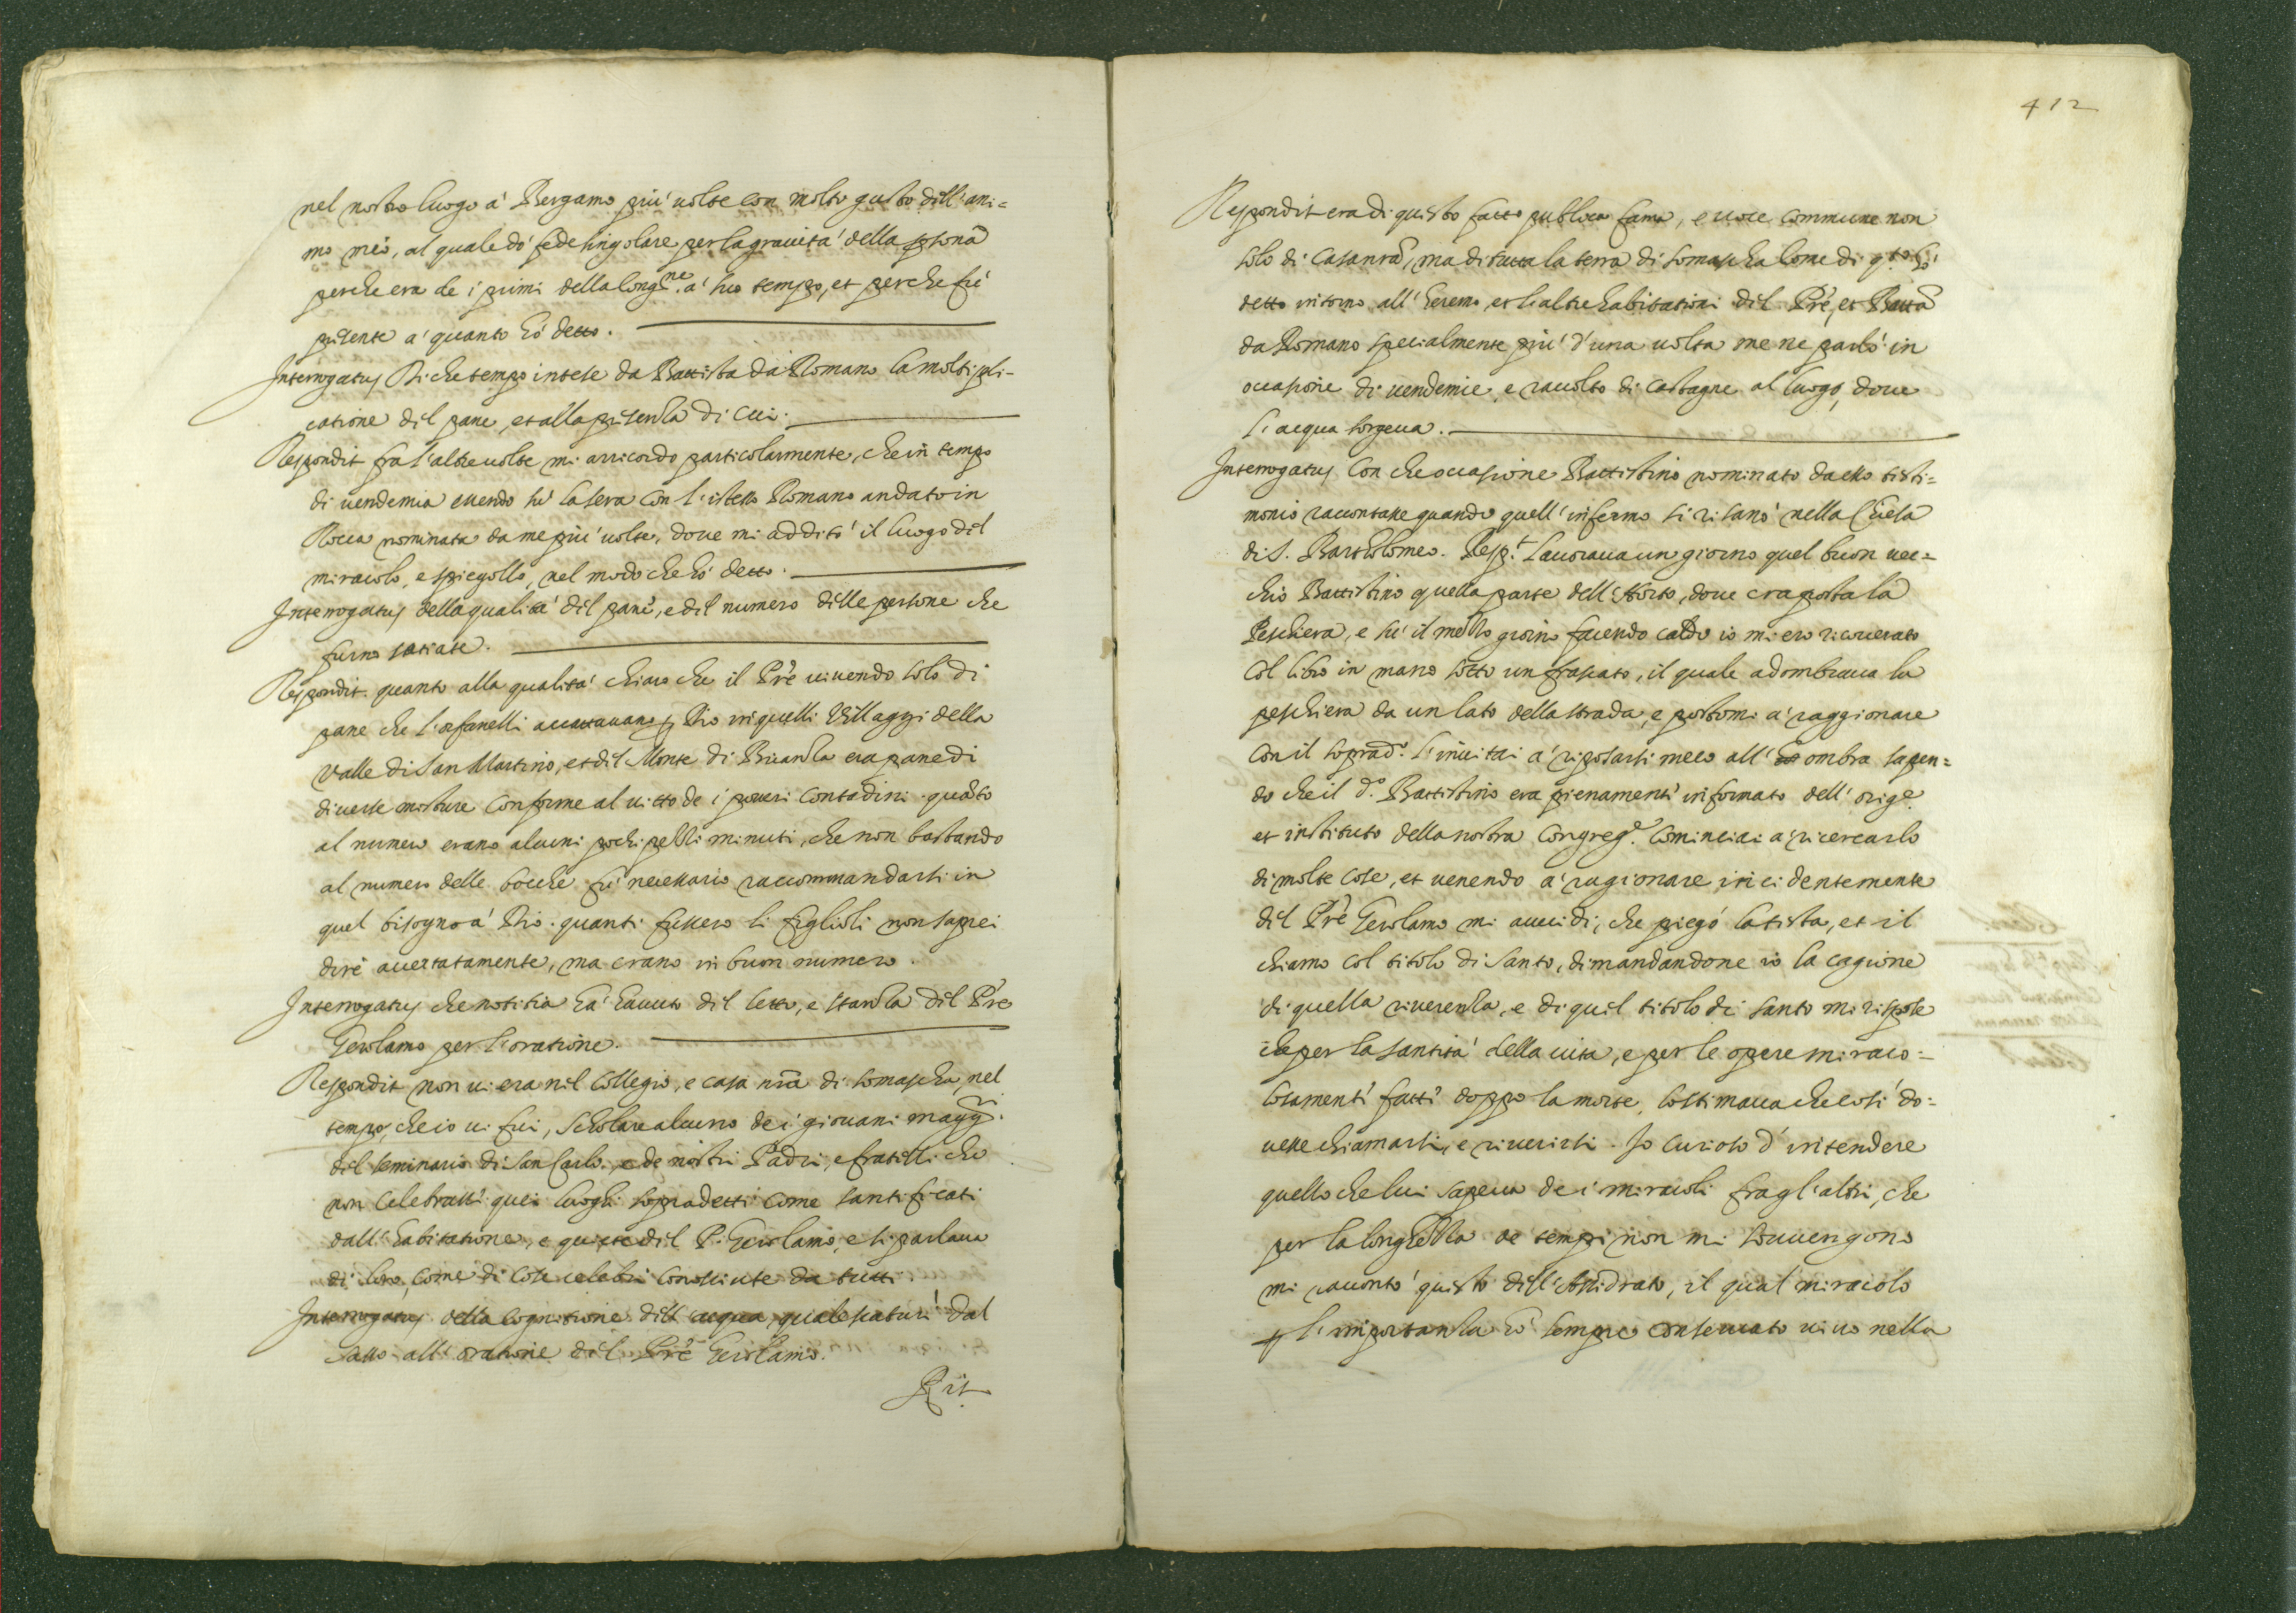 nel nostro luogo à Bergamo più uolte con molto gusto dell'ani=
mo mio, al quale dò fede singolare per la grauità della psona
perche era de i primi della Congne. a suo tempo, et perche fù
presente a quanto hò detto.
Interrogatus Di che tempo intese da Battista da Romano la moltipli-
catione del pane, et alla presenza di cui.
Respondit fra l'altre uolte mi arricordo particolarmente, che in tempo
di uendemia essendo sù la sera con l'istesso Romano andato in
Rocca nominata da me più uolte, doue mi additò il luogo del
miracolo, e spiegollo, nel modo che hò detto.
Interrogatus della qualità del pane, e del numero delle persone che
furno satiate.
Respondit quanto alla qualità chiaro che il Prè uiuendo solo di
pane che l'orfanelli accattauano p Dio in quelli Villaggi della
Valle di San Martino, et del Monte di Brianza era pane di
diuerse misture conforme al uitto de i poueri contadini. quãto
al numero erano alcuni pochi pezzi minuti, che non bastando
al numero delle bocche fù necessario raccommandarsi in
quel bisogno à Dio. quanti fussero li figlioli non saprei
dire accertatamente, ma erano in buon numero.
Interrogatus che notitia hà hauuto del letto, e stanza del Prè
Gerolamo per l'oratione.
Respondit non ui era nel Collegio, e casa nrã di Somascha, nel
tempo, che io ui fui, scholare alcuno de i giouani maggri.
del seminario di San Carlo, e de nostri Padri, e fratelli che
non celebrassi quei luoghi sopradetti come santificati
dall'habitatione, e quiete del P. Gerolamo, e si parlaua
di loro, come di cose celebri conosciute da tutti.
Interrogatus della cognitione dell'acqua, quale scaturì dal
sasso all'oratione del Prè Gerolamo.
Rit
412
Respondit era di questo fatto publica fama, e uoce commune non
solo di Casa nrã, ma di tutta la terra di Somascha come di qto hò
detto intorno all'heremo, et l'altre habitationi del Prè, et Battã
da Romano specialmente più d'una uolta me ne parlò in
occasione di uendemie, e raccolto di castagne al luogo, doue
l'acqua sorgeua.
Interrogatus Con che occasione Battistino nominato da esso testi=
monio raccontasse quando quell'infermo si risanò nella Chiesa
di S. Bartholomeo. Respt. Lauoraua un giorno quel buon uec=
chio Battistino quella parte dell'Horto, doue era posta la
Peschiera, e sù il mezzo giorno facendo caldo io mi ero ricouerato
col libro in mano sotto un frascato, il quale adombraua la
peschiera da un lato della strada, e postomi à raggionare
con il soprado. l'inuitai à riposarsi meco all'ombra sapen=
do che il do. Battistino era pienamente informato dell'orige.
et instituto della nostra Congrege. Cominciai à ricercarlo
di molte cose, et uenendo à ragionare incidentemente
del Prè Gerolamo mi auuidi, che piegò la testa, et il
chiamò col titolo di santo, dimandandone io la cagione
di quella riuerenza, e di quel titolo di santo mi rispose
che per la santità della uita, e per le opere miraco=
losamente fatte doppo la morte, lo stimaua che così do=
uesse chiamarsi, e riuerirsi. Io curioso d'intendere
quello che lui sapeua de i miracoli fra gl'altri, che
per la longhezza de tempi non mi souuengono
mi raccontò questo dell'Assidrato, il qual miracolo
p l'importanza hò sempre conseruato uiuo nella